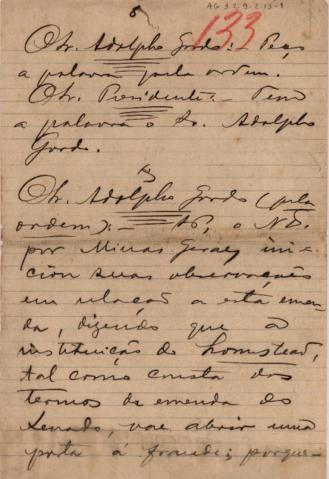 AG 3.2.9.2.13-1
133
O Sr. Adolpho Gordo: Peço
a palavra pela ordem.
O Sr. Presidente: – Tem
a palavra o Sr. Adolpho
Gordo.
O Sr. Adolpho Gordo (pela
ordem): – o N. D.
por Minas Geraes ini-
ciou suas observações
em relação a esta emen-
da, dizendo que a
instituição do homestead,
tal como consta dos
termos da emenda do
Senado, vae abrir uma
porta á fraude; porque-